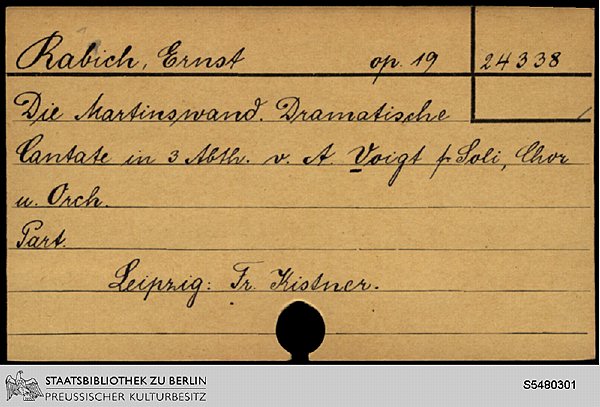 Rabich, Ernst op. 19 24338
Die Martinswand. Dramatische
Cantate in 3 Abth. v. A. Voigt f. Soli, Chor
u. Orch.
Part.
Leipzig: Fr. Kistner.
STAATSBIBLIOTHEK ZU BERLIN
PREUSSISCHER KULTURBESITZ
S5480301